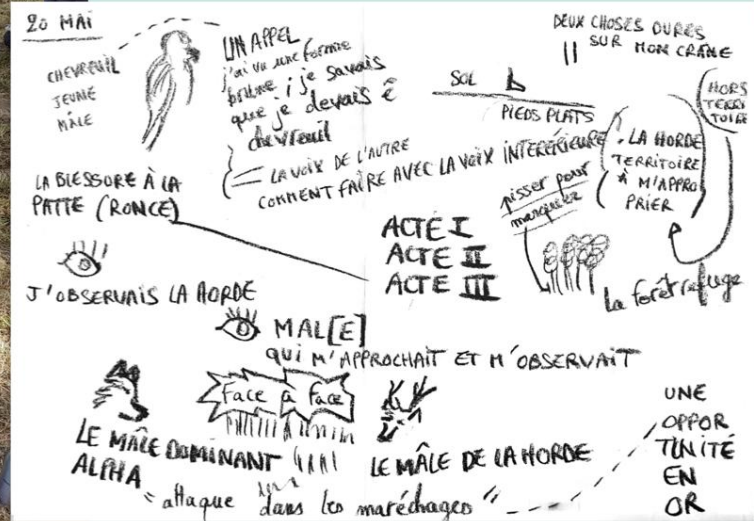 20 MAI
CHEVREUIL
JEUNE
MÂLE
UN APPEL
j'ai vu une forme
brune ; je savais
que je devais ê
chevreuil
LA VOIX DE L'AUTRE
COMMENT FAIRE AVEC LA VOIX INTERÉRIEURE
DEUX CHOSES DURES
SUR MON CRÂNE
SOL
PIEDS PLATS
HORS
TERRI
TOIRE
LA HORDE
TERRITOIRE
À M'APPRO
PRIER
pisser pour
marquer
la forêt refuge
LA BLESSURE À LA
PATTE (RONCE)
ACTE I
ACTE II
ACTE III
J'OBSERVAIS LA HORDE
MAL[E]
QUI M'APPROCHAIT ET M'OBSERVAIT
Face à face
LE MÂLE DOMINANT
ALPHA
LE MÂLE DE LA HORDE
"attaque dans les maréchages"
UNE
OPPOR
TUNITÉ
EN
OR